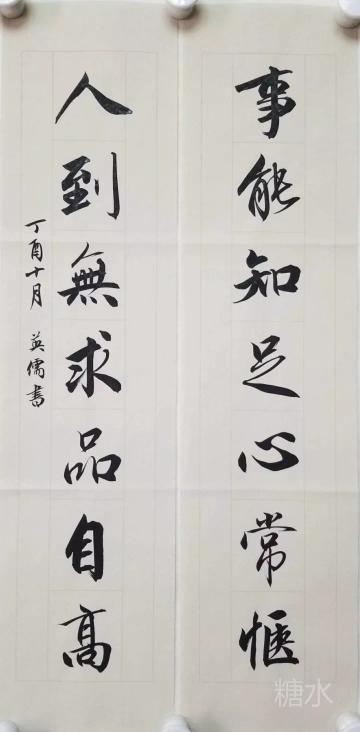 事能知足心常惬
人到無求品自高
丁酉十月 英儒書
糖水